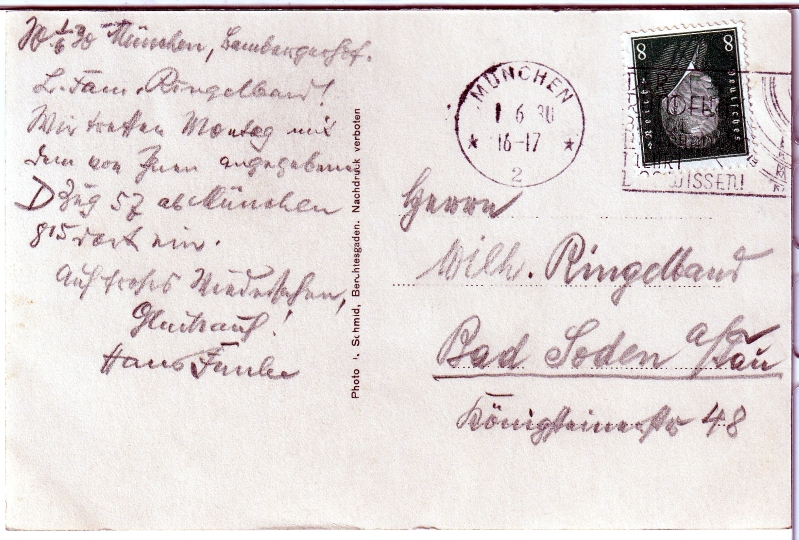 1/6 30 München, Bambergerhof.
L. Fam. Ringelband!
Wir treffen Montag mit
dem von Ihnen angegebenen
D Zug 57 ab München
815 dort ein.
Auf frohes Wiedersehen,
Glückauf!
Hans Funke
Photo . Schmid, Berchtesgaden. Nachdruck verboten
MÜNCHEN
1 6 30
16-17
2
8 8
Deutsches
Reich
WISSEN!
Herrn
Wilh. Ringelband
Bad Soden a/Tau
Königsteinerstr 48